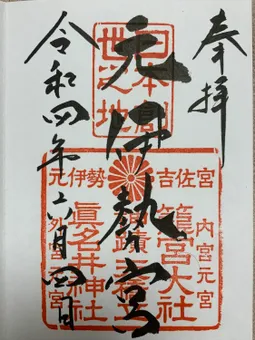 奉拝
元伊勢宮
令和四年六月四日
世之地
元伊勢 吉佐宮
内宮元宮
籠宮大社
眞名井神社
外宮元宮